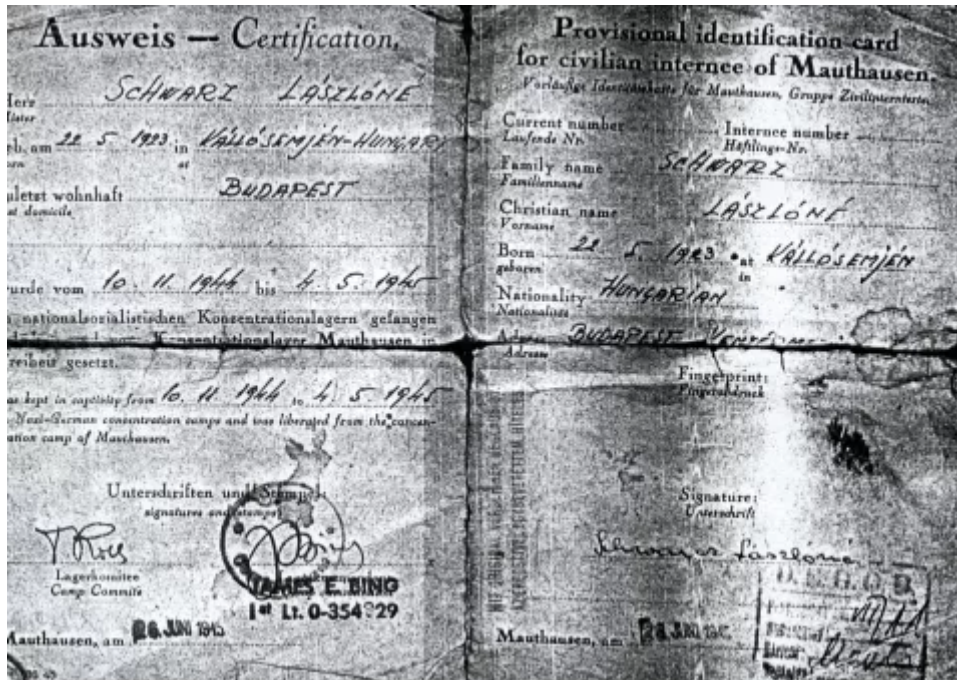 Ausweis — Certification.
SCHWARZ LÁSZLÓNÉ
22 5 1923 in KÁLLÓSEMJÉN-HUNGARY
at
wohnhaft BUDAPEST
domicile
vom 10. 11. 1944 bis 4. 5. 1945
nationalsozialistischen Konzentrationslagern gefangen
Konzentrationslager Mauthausen in
gesetzt.
kept in captivity from 10. 11. 1944 to 4. 5. 1945
Nazi-German concentration camps and was liberated from the concen-
camp of Mauthausen.
Unterschriften und Stempel:
signatures and stamps
Lagerkomitee
Camp Commite
JAMES E. BING
1st Lt. 0-354 29
Mauthausen, am 26. JUNI 1945
Provisional identification card
for civilian internee of Mauthausen.
Vorläufige Identitätskarte für Mauthausen, Gruppe Zivilinternierte
Current number Internee number
Laufende Nr. Häftlings-Nr.
Family name SCHWARZ
Familienname
Christian name LÁSZLÓNÉ
Vorname
Born 22 5. 1923 at KÁLLÓSEMJÉN
geboren in
Nationality HUNGARIAN
Nationalität
BUDAPEST
Adresse
Fingerprint:
Fingerabdruck
Signature:
Unterschrift
Schwarz Lászlóné
D.E.G.O.B.
Mauthausen, am